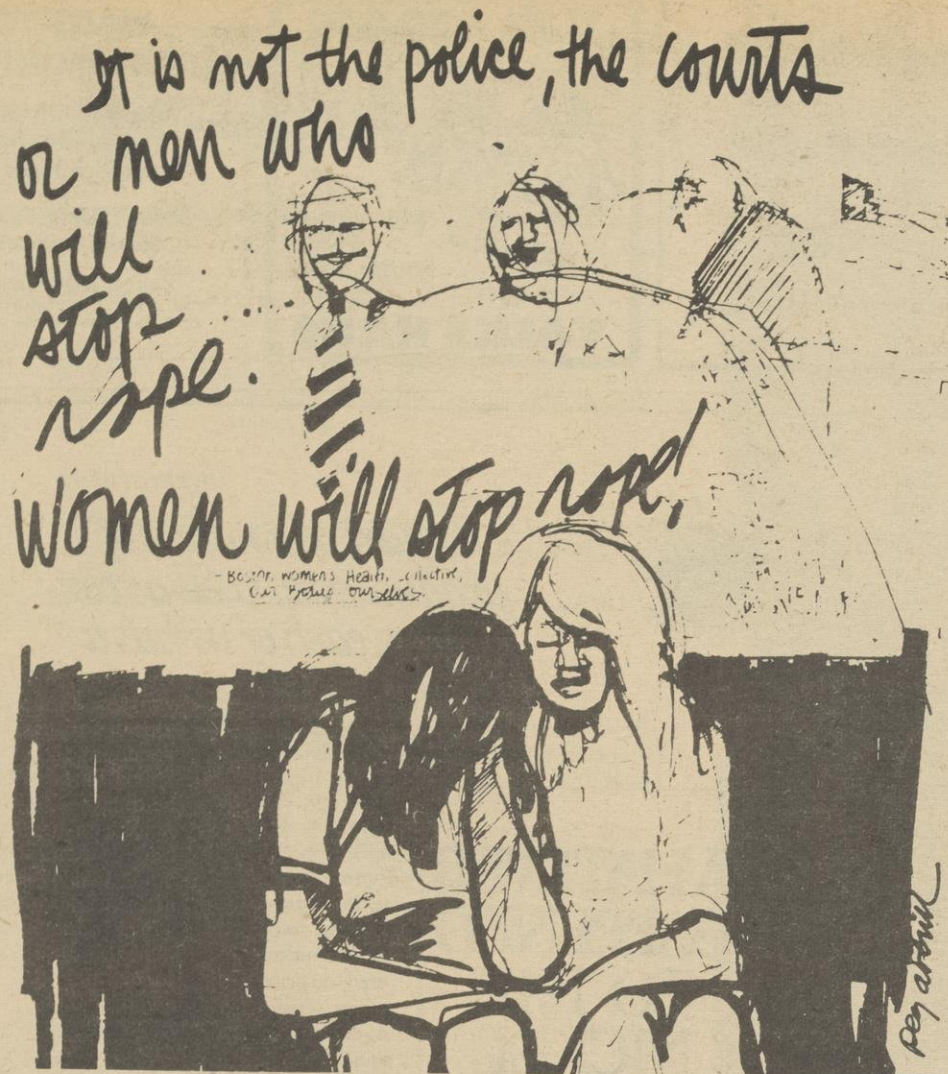 It is not the police, the courts
or men who
will
stop
rape.
Women will stop rape!
- Boston Women's Health Collective,
Our Bodies Ourselves.
Peg Averill